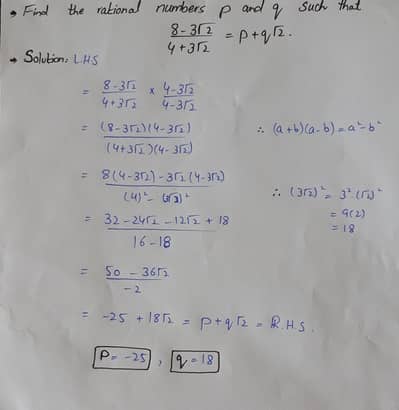 → Find the rational numbers p and q such that
(8-3√2)/(4+3√2) = p+q√2.
→ Solution: LHS
= (8-3√2)/(4+3√2) × (4-3√2)/(4-3√2)
= (8-3√2)(4-3√2)/(4+3√2)(4-3√2) ∴ (a+b)(a-b) = a²-b²
= 8(4-3√2)-3√2(4-3√2)/(4)²-(3√2)² ∴ (3√2)² = 3².(√2)²
= 9(2)
= 18
= 32-24√2-12√2+18/16-18
= 50-36√2/-2
= -25+18√2 = p+q√2 = R.H.S.
P = -25, q = 18